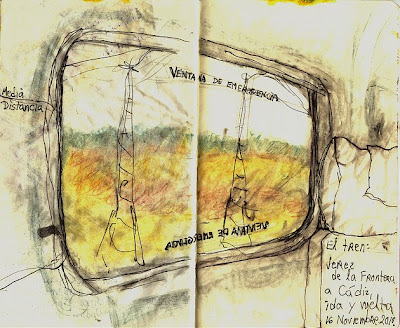 Media
Distancia
VENTANA DE EMERGENCIA
VENTANA DE EMERGENCIA
El tren:
Jerez
de la Frontera
a Cádiz,
ida y vuelta
16 Noviembre